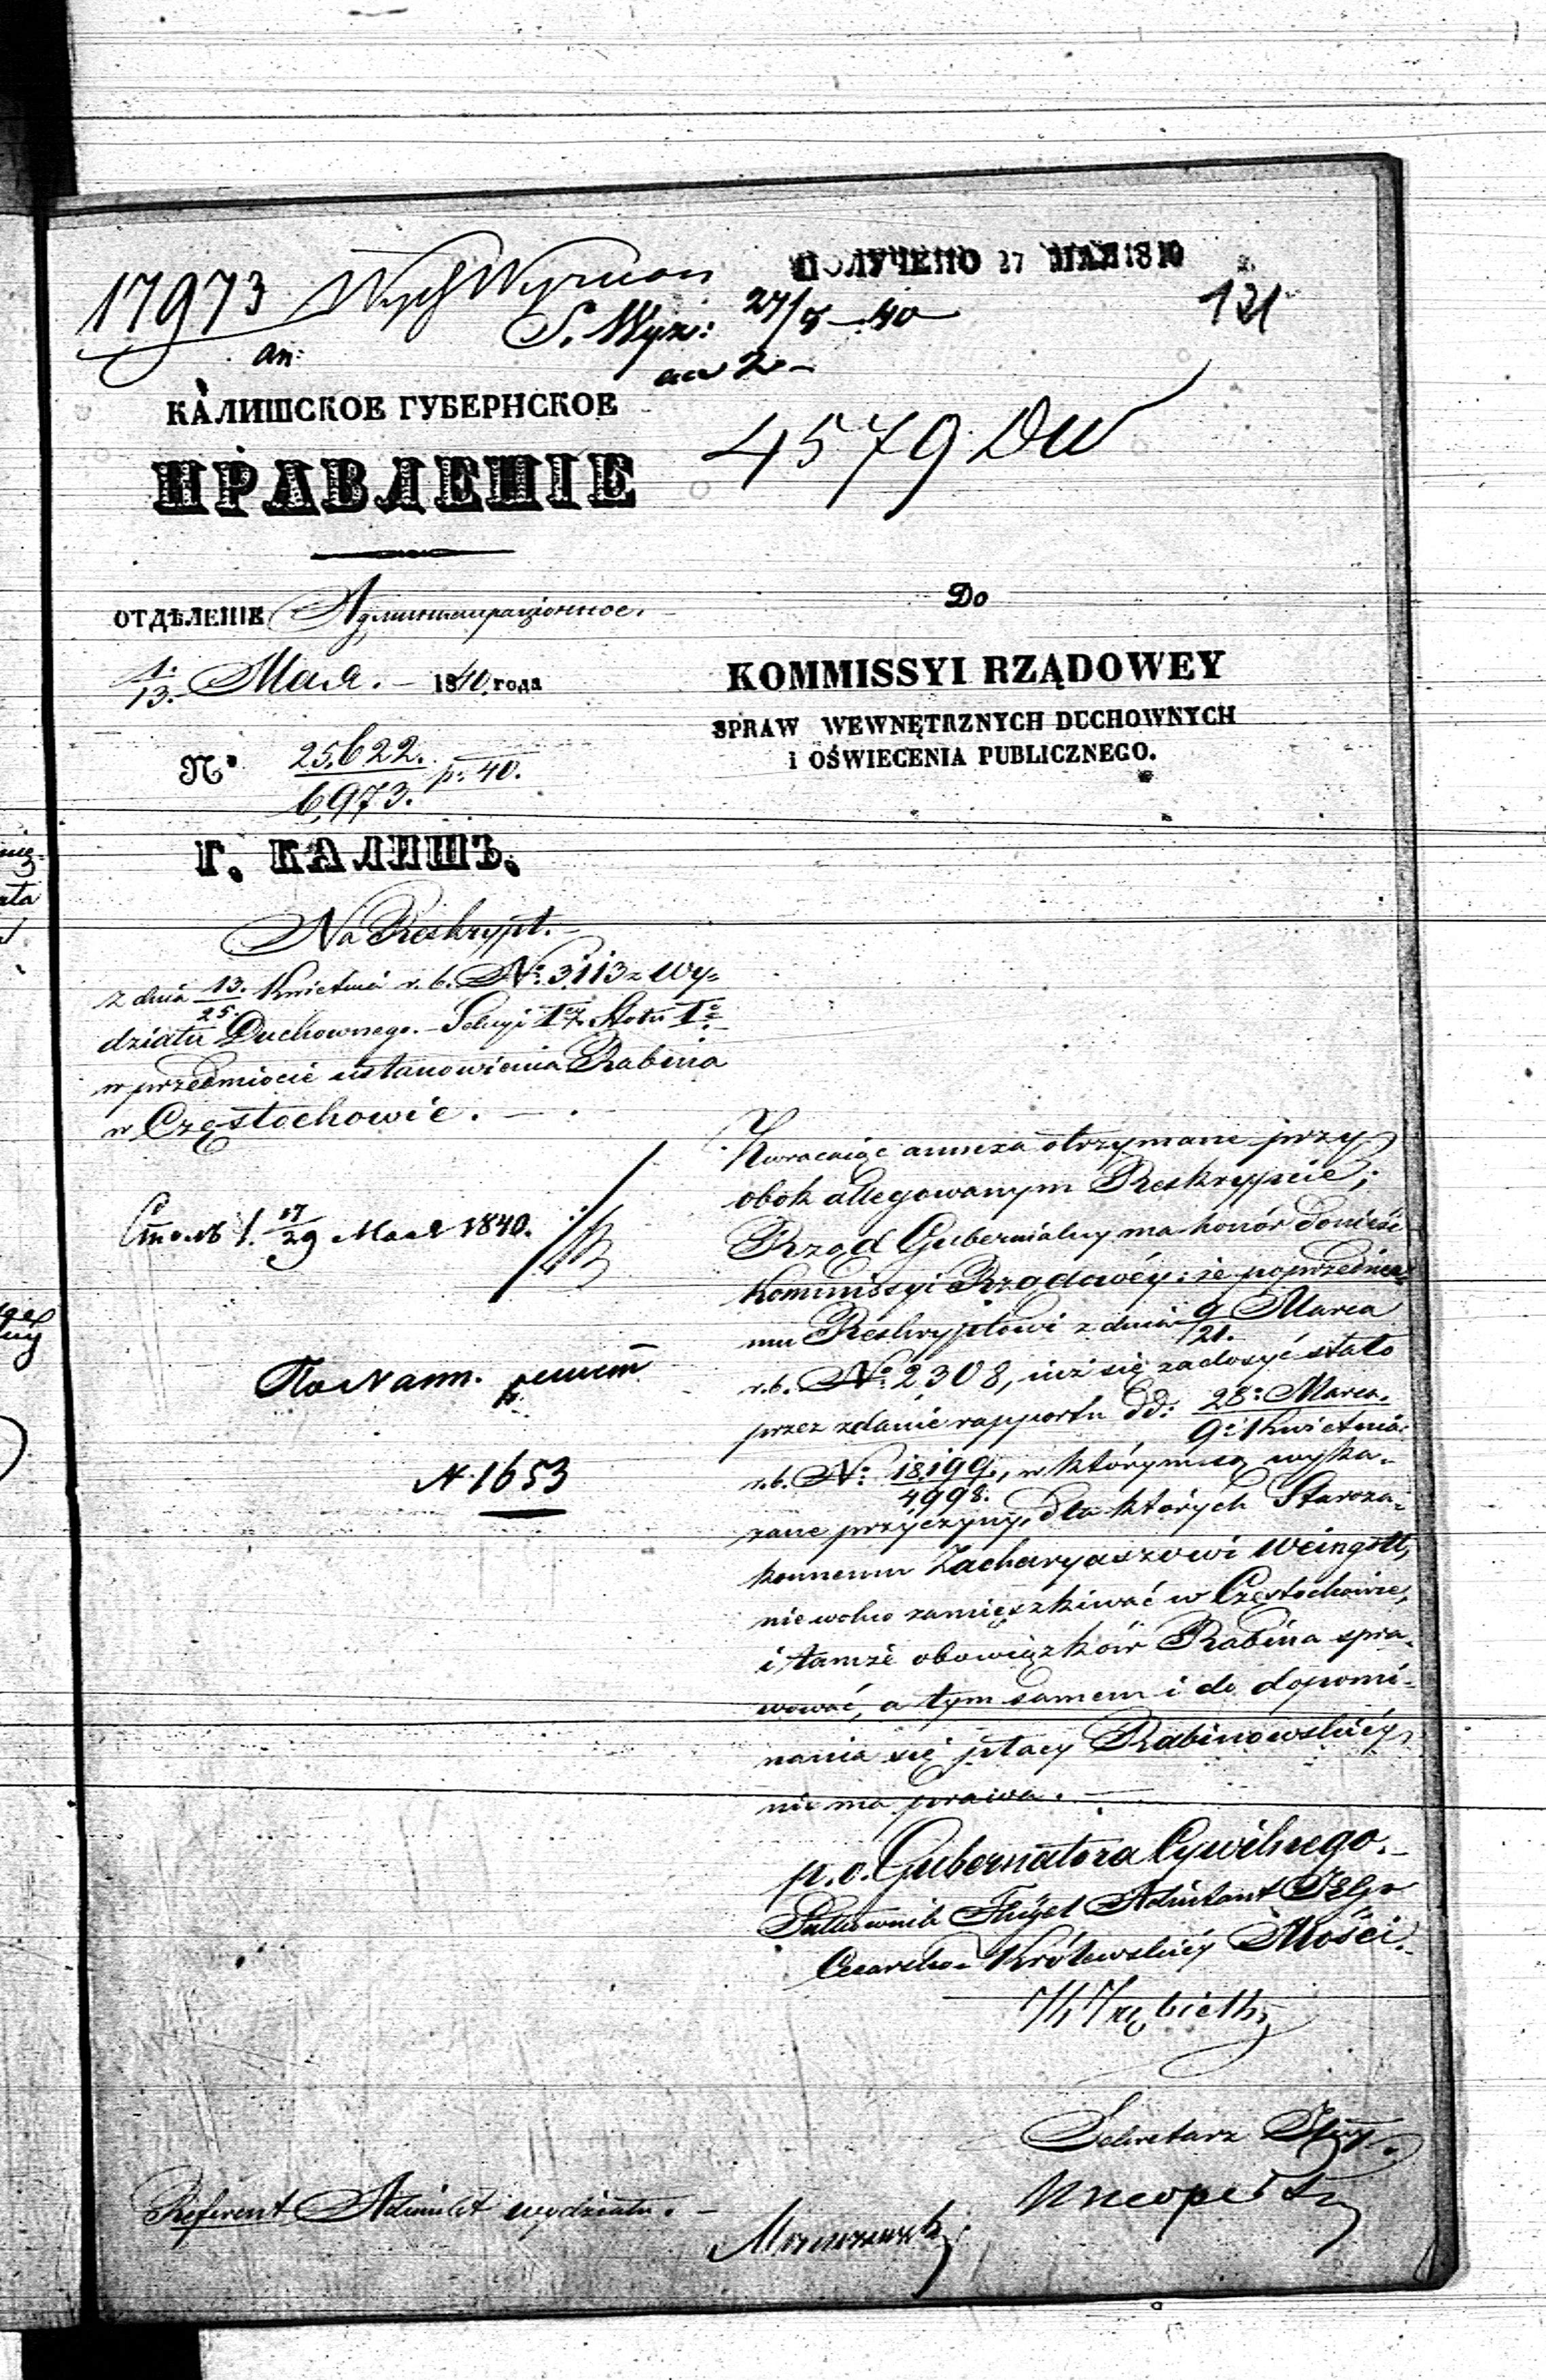 ПОЛУЧЕНО 27 МАЯ 1840
17973
S. Wyz: 27/5 – 40
121
an:
4579 DW
КАЛИШСКОЕ ГУБЕРНСКОЕ
ПРАВЛЕНІЕ
ОТДѢЛЕНІЕ Административное.
1/13. Мая. – 1840 года
№ 25,622./6,973. р. 40.
Г. КАЛИШЪ.
Do
KOMMISSYI RZĄDOWEY
SPRAW WEWNĘTRZNYCH DUCHOWNYCH
i OŚWIECENIA PUBLICZNEGO.
Na Reskrypt. –
z dnia 13./25. Kwietnia r. b. No. 3113 z Wy=
działu Duchownego. –
w przedmiocie ustanowienia Rabina
w Częstochowie. –
17/29 Мая 1840.
N. 1653
Zwracaiąc annexa otrzymane przy
obok allegowanym Reskrypcie;
Rząd Gubernialny ma honór donieść
Kommissyi Rządowéy: że poprzednie=
mu Reskryptowi z dnia 9/21. Marca
r. b. No. 2,308, iuż się zadosyć stało
przez zdanie rapportu dd: 28: Marca./9: Kwietnia
r. b. No: 18,199./4998., w którym są wyka=
zane przyczyny, dla których Staroza=
konnemu Zacharyaszowi Weingott,
niewolno zamięszkiwać w Częstochowie,
i tamże obowiązków Rabina spra=
wować, a tym samem i do dopomi=
nania się płacy Rabinowskiéy
nie ma prawa. –
p. o. Gubernatora Cywilnego. –
Pułkownik Fligel Adiutant Jego
Cesarsko= Królewskiéy Mości.
Sekretarz
Referent Adminst wydziału. –